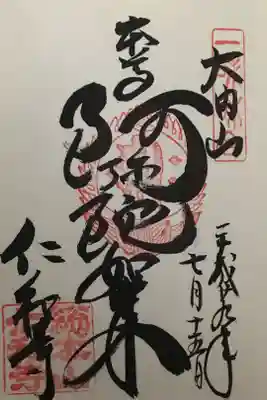 大内山
本尊
阿弥陀如来
平成廿九年
七月十五日
仁和寺